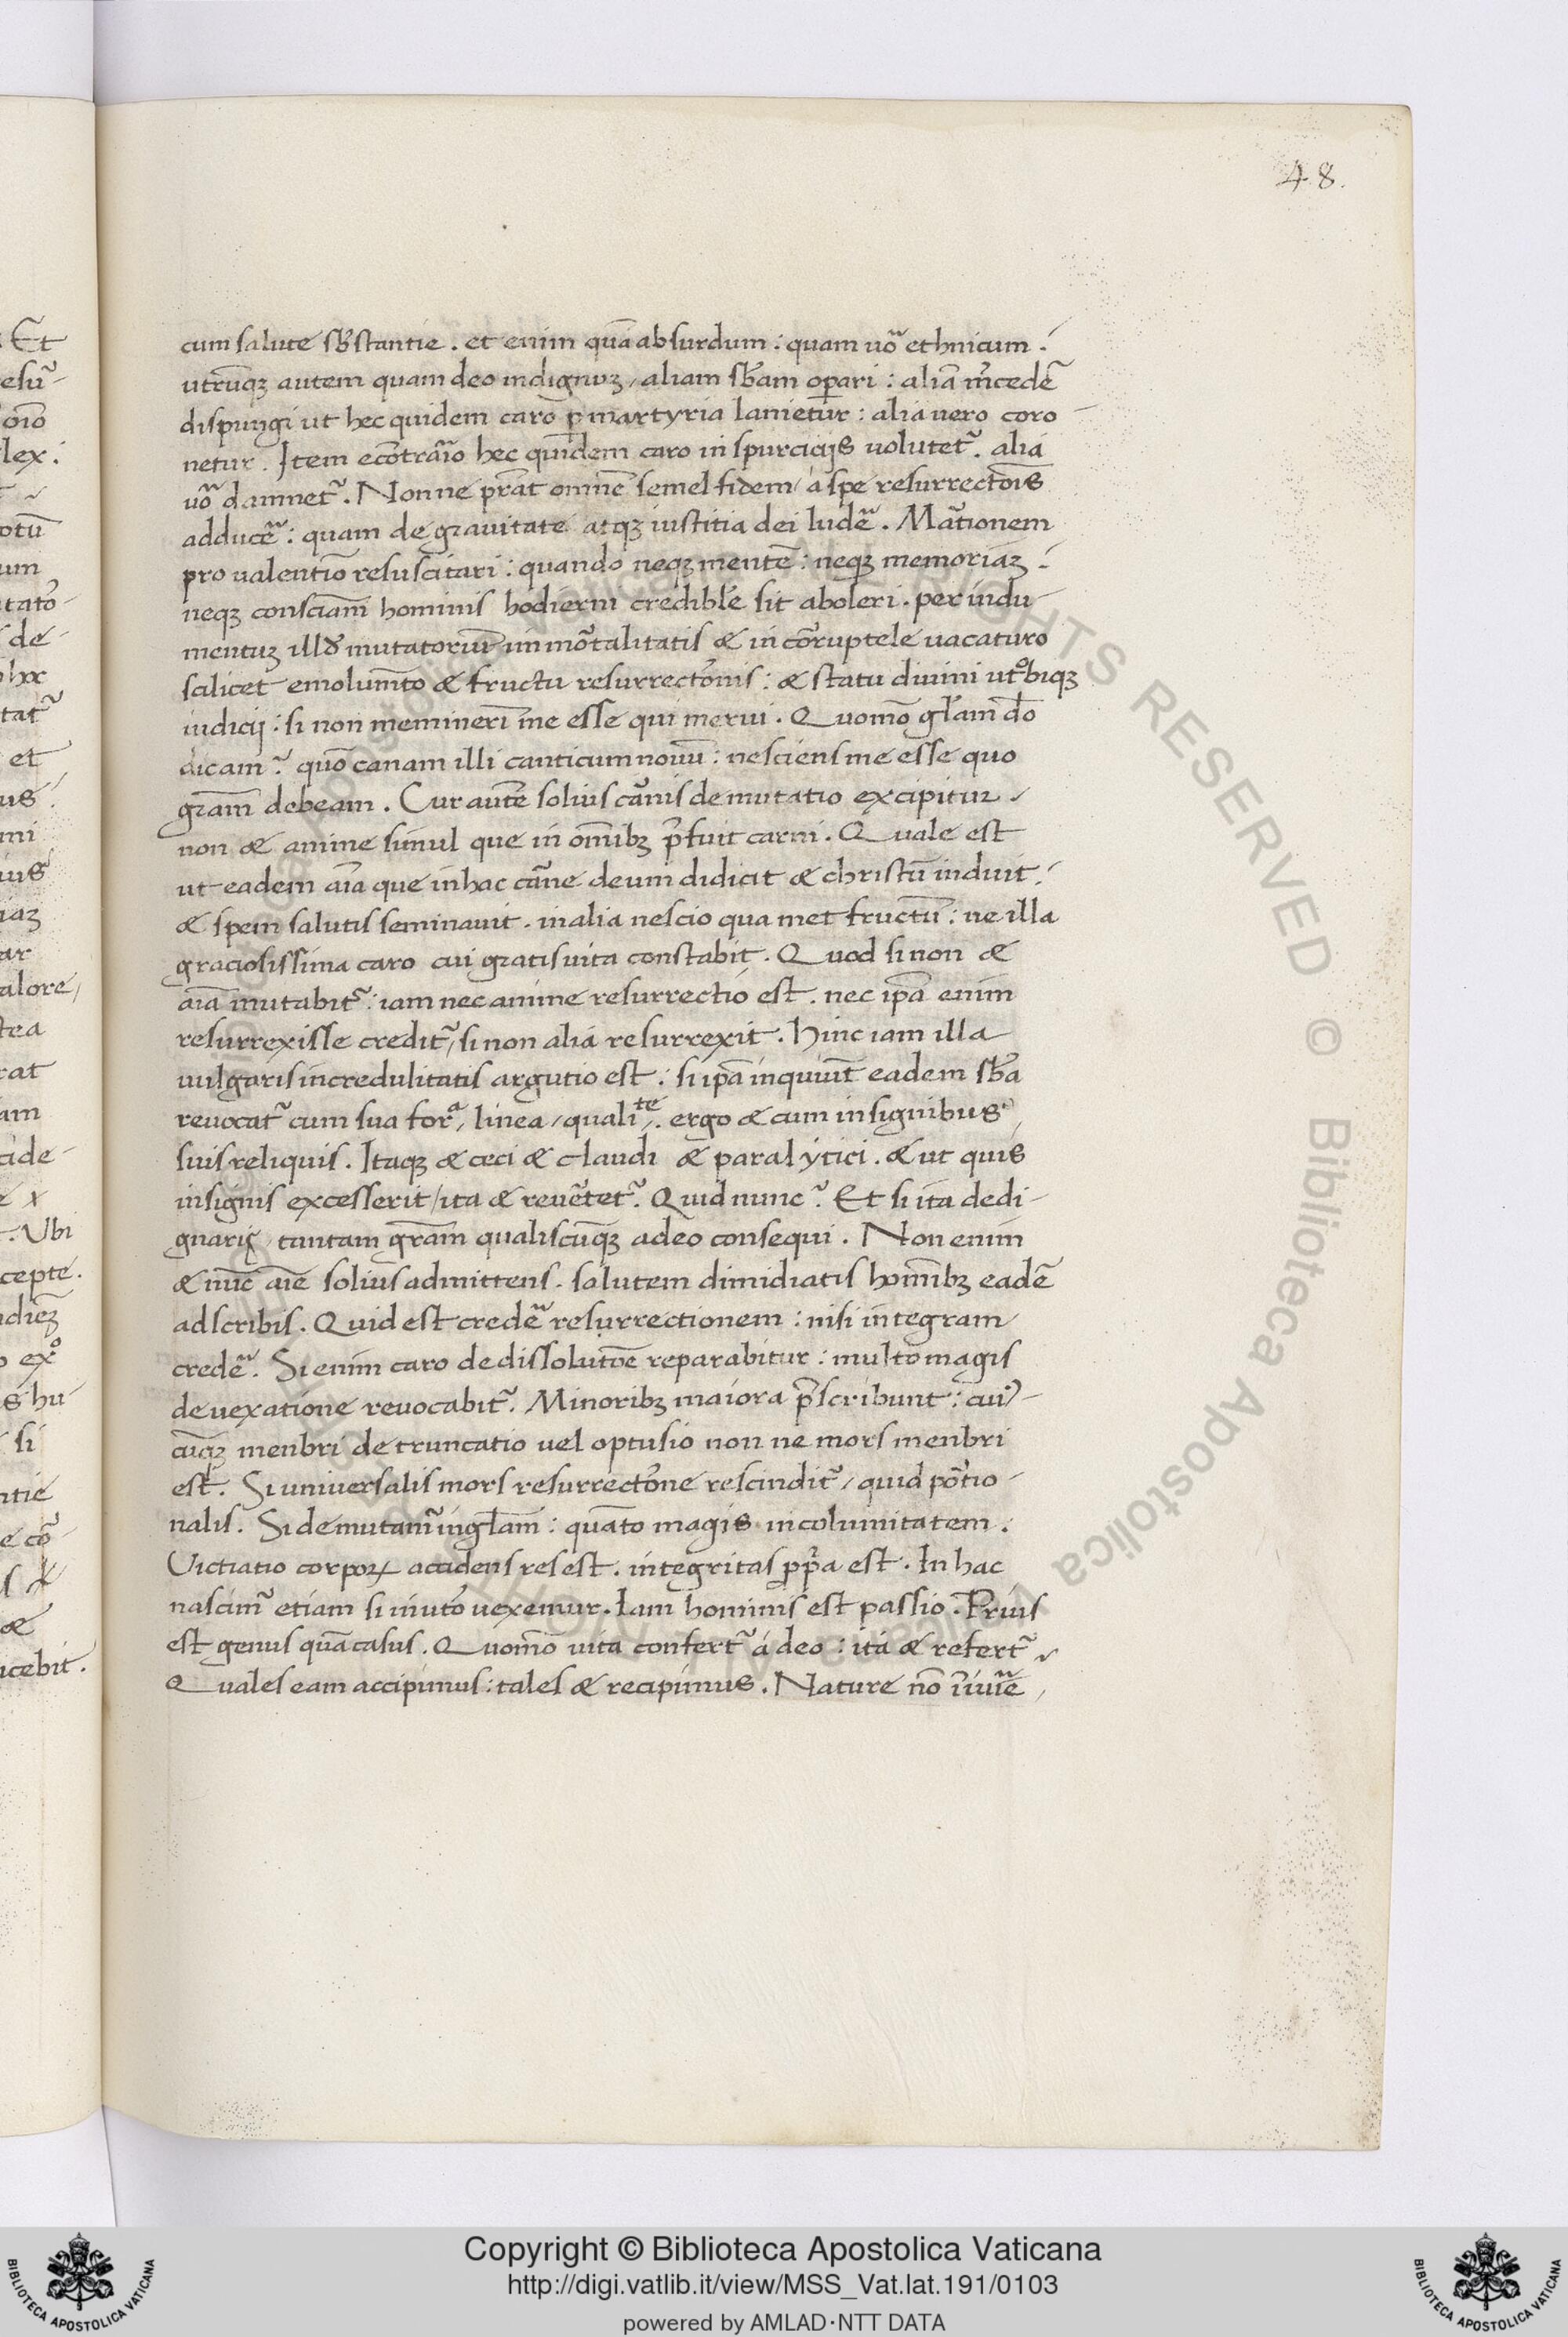 48.
cum salute sb̄stantie . et enim quā absurdum : quam uō ethnicum .
utrūqꝫ autem quam deo indignuꝫ / aliam sb̄am oꝑari : aliā m̄cedē
dispungi ut hec quidem caro ꝑ martyria lanietur : alia uero coro
netur . Item ecōtrāio hec quidem caro in spurcicijs uolutet̄ . alia
uō damnet̄ . Nonne prāt omnē semel fidem / a spe resurrectōis
adducē : quam de grauitate atqꝫ iustitia dei ludē . Mātionem
pro ualentīo resuscitari : quando neqꝫ mentē : neqꝫ memoriaꝫ :
neqꝫ consciam̄ hominis hodierni credibl̄e sit aboleri . per indu-
mentuꝫ illd̄ mutatorium immōtalitatis & incōruptele uacaturo
scilicet emolumt̄o & fructu resurrectōnis : & statu diuini utobiqꝫ
iudicij : si non meminerī me esse qui merui . Quomō gl̄am dō
dicam ? quō canam illi canticum nouū : nesciens me esse quo
grām debeam . Cur autē solius cānis demutatio excipitur
non & anime simul que in omībꝫ p̄fuit carni . Quale est
ut eadem aīa que in hac cāne deum didicit & christū induit .
& spem salutis seminauit . in alia nescio qua met fructū : ne illa
graciosissima caro cui gratis uita constabit . Quod si non &
aīa mutabit̄ : iam nec anime resurrectio est . nec ip̄a enim
resurrexisse credit̄ / si non alia resurrexit . Hinc iam illa
uulgaris incredulitatis argutio est : si ip̄a inquiūt eadem sb̄a
reuocat̄ cum sua forᵃ / linea / qualiᵗᵉ . ergo & cum insignibus
suis reliquis . Itaqꝫ & ceci & claudi & paralytici . & ut quis
insignis excesserit / ita & reuētet̄ . Quid nunc ? Et si ita dedi-
gnaris tantam grām qualiscūqꝫ a deo consequi . Non enim
& nūc aīe solius admittens . salutem dimidiatis homībꝫ eadē
adscribis . Quid est credē resurrectionem : nisi integram
credē . Si enim caro de dissolutōe reparabitur : multo magis
de uexatione reuocabit̄ . Minoribꝫ maiora p̄scribunt : cui -
cūqꝫ menbri detruncatio uel optusio non ne mors menbri
est . Si uniuersalis mors resurrectōne rescindit̄ / quid pōtio-
nalis . Si demutam̄ in gl̄am : quāto magis in columitatem .
Uictiatio corpoꝝ accidens res est . integritas ꝓp̄a est . In hac
nascim̄ etiam si in utō uexemur . Iam hominis est passio . Prius
est genus quā casus . Quomō uita confert̄ a deo : ita & refert̄
Quales eam accipimus : tales & recipimus . Nature nō īiuiē
Copyright © Biblioteca Apostolica Vaticana
http://digi.vatlib.it/view/MSS_Vat.lat.191/0103
powered by AMLAD·NTT DATA